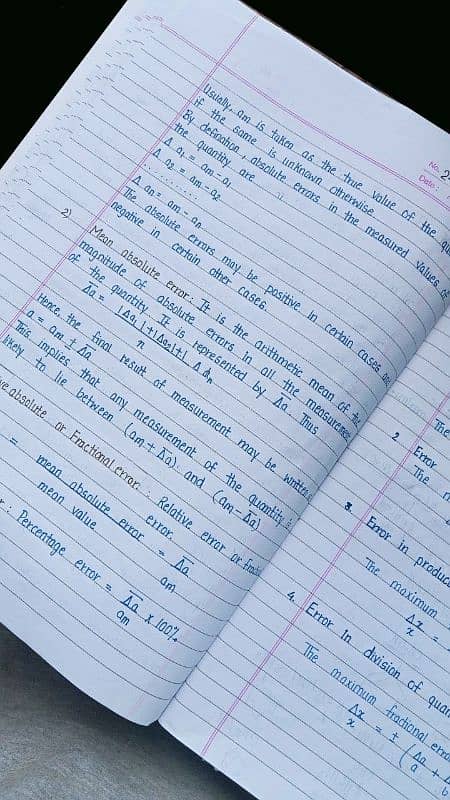 No. 2
Date :
Usually am is taken as the true value of the
if the same is unknown otherwise
By defination, absolute errors in the measured values of
the quantity are
Δ a1 = am - a1
Δ a2 = am - a2
Δ an = am - an
The absolute errors may be positive in certain cases
negative in certain other cases.
2) Mean absolute error : It is the arithmetic mean of the
magnitude of absolute errors in all the measurement
of the quantity. It is represented by Δa. Thus
Δa = |Δa1|+|Δa2|+| Δ an
n
Hence, the final result of measurement may be written
a = am ± Δa
This implies that any measurement of the quantity is
likely to lie between (am + Δa) and (am - Δa)
absolute or Fractional error. : Relative error or
error.
= mean absolute error = Δa
mean value am
: Percentage error = Δa x 100%
am
The
2. Error
The
3. Error in
The maximum
Δx =
x
4. Error In division of
The maximum fractional
Δx = ± ( Δa +
x a b